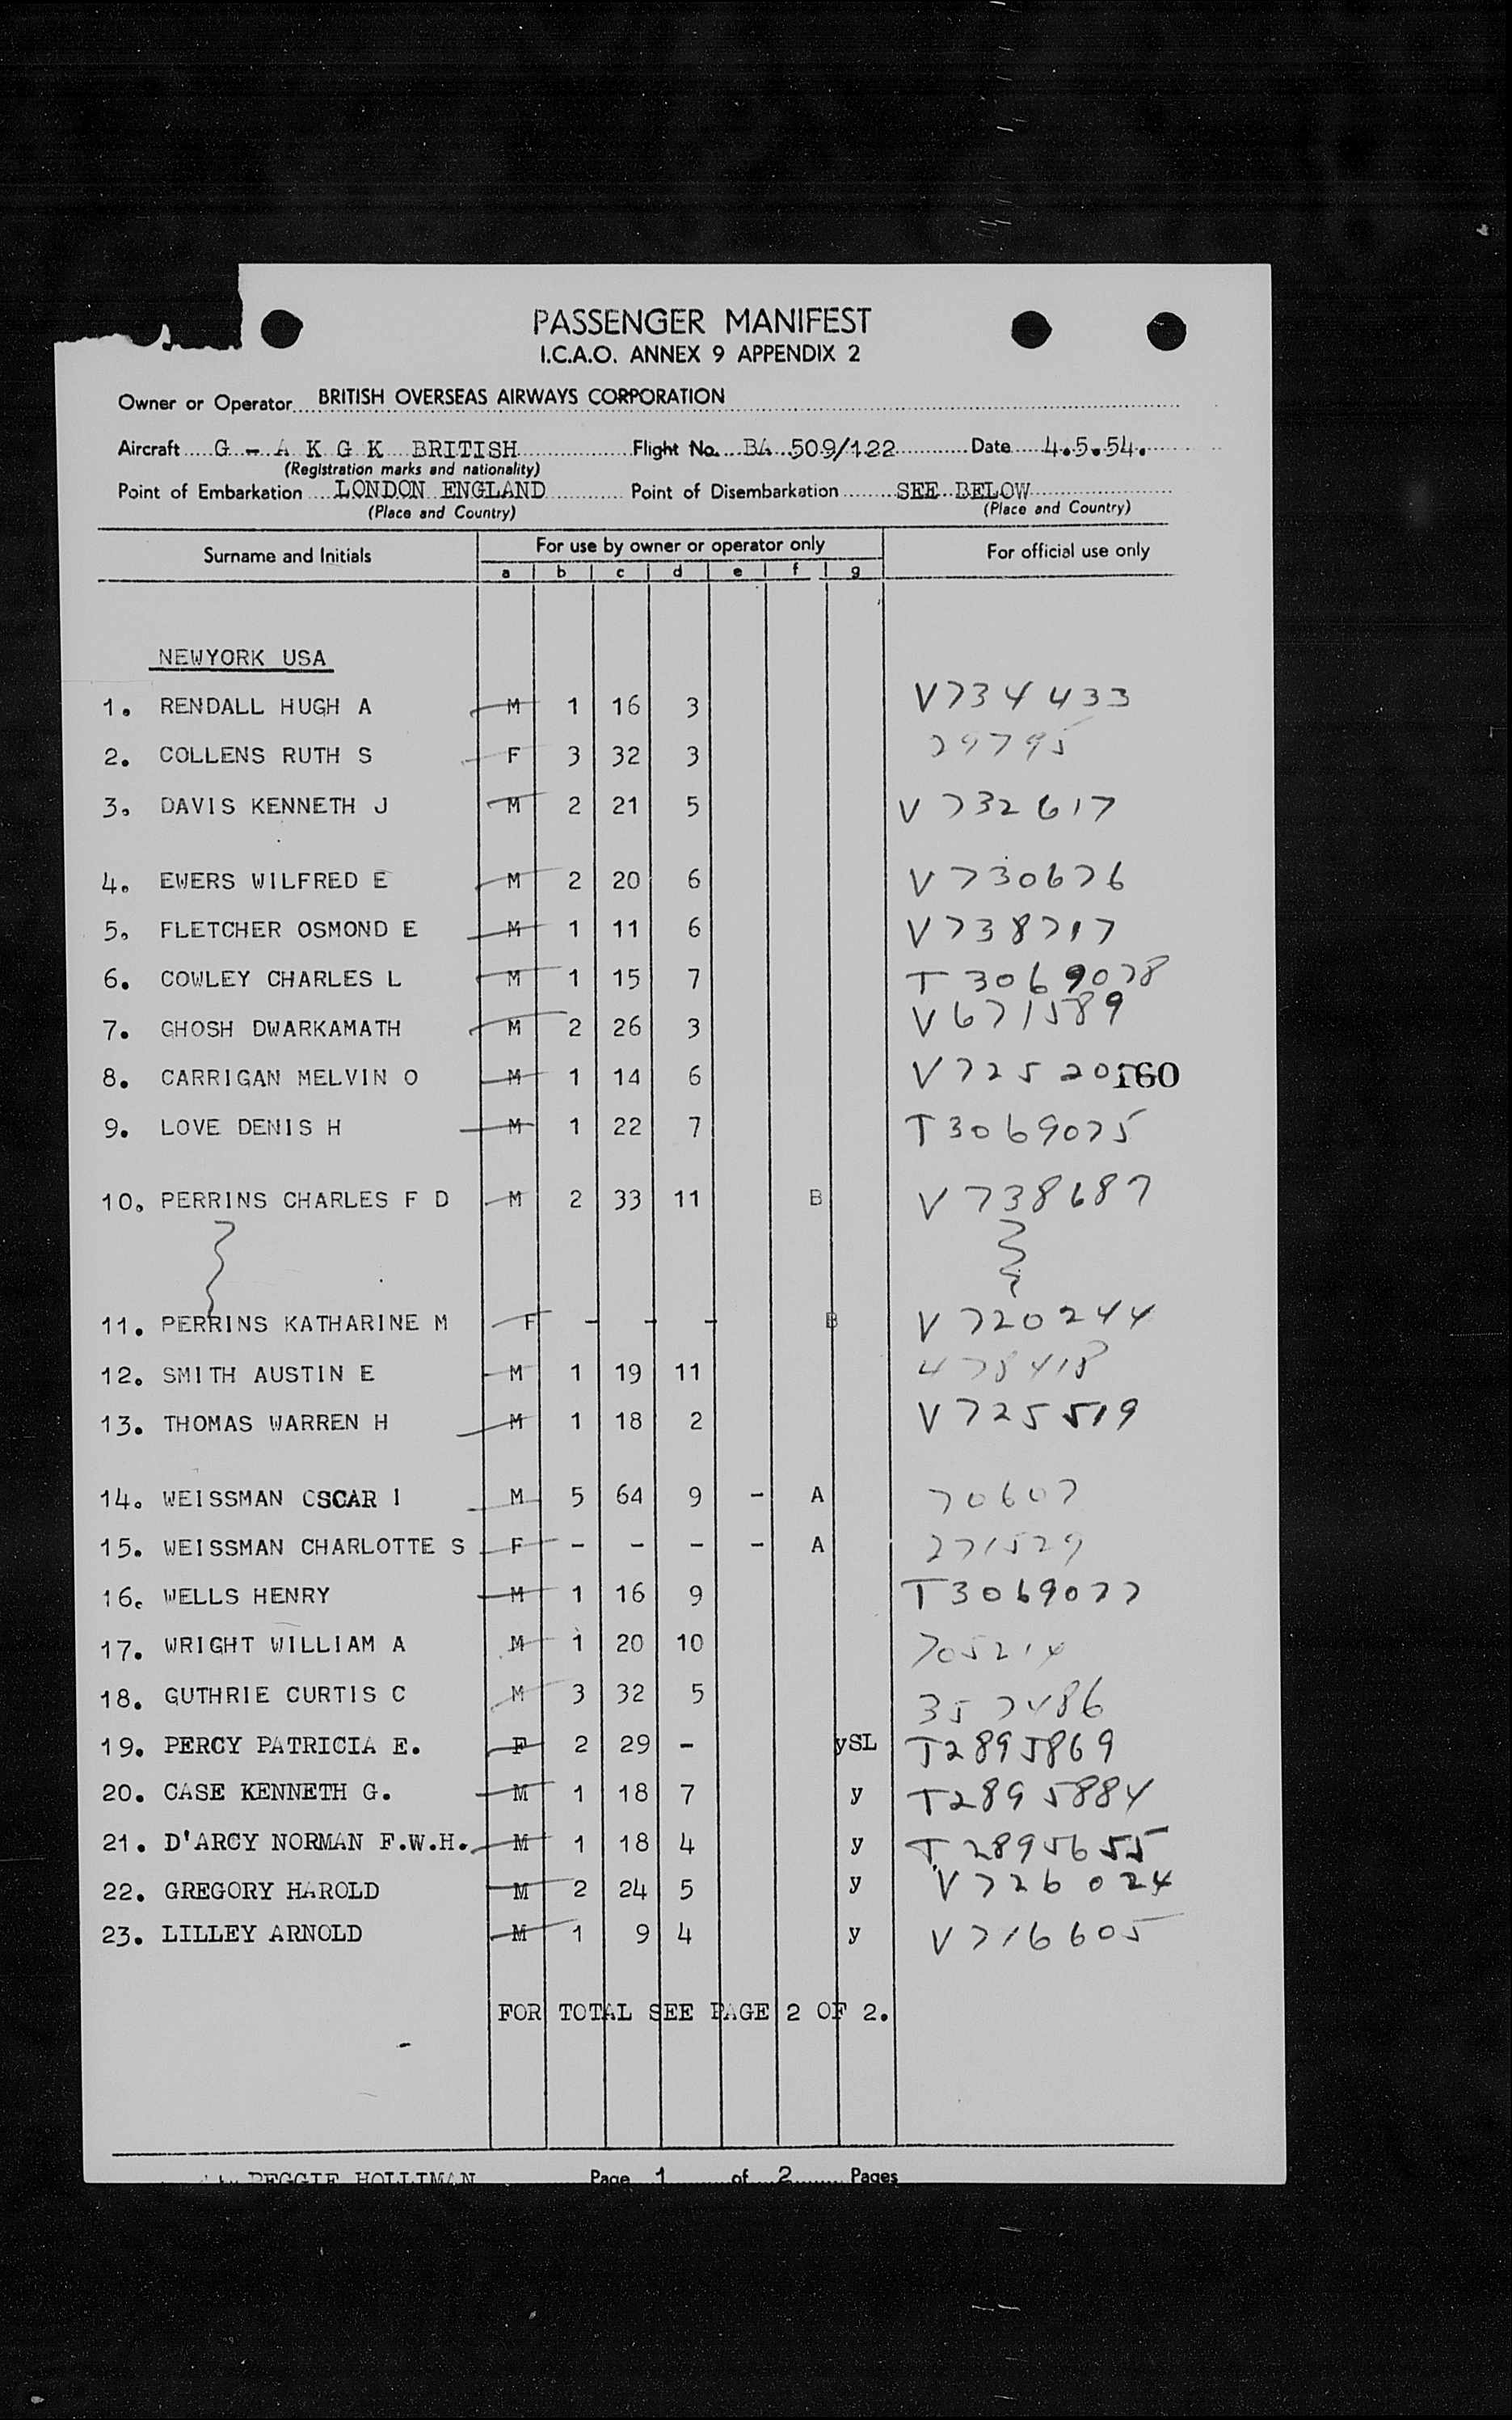 PASSENGER MANIFEST
I.C.A.O. ANNEX 9 APPENDIX 2
Owner or Operator BRITISH OVERSEAS AIRWAYS CORPORATION
Aircraft G - A K G K BRITISH Flight No. BA 509/122 Date 4.5.54.
(Registration marks and nationality)
Point of Embarkation LONDON ENGLAND Point of Disembarkation SEE BELOW
(Place and Country) (Place and Country)
Surname and Initials For use by owner or operator only For official use only
a b c d e f g
NEWYORK USA
1. RENDALL HUGH A M 1 16 3 V734433
2. COLLENS RUTH S F 3 32 3 29795
3. DAVIS KENNETH J M 2 21 5 V732617
4. EWERS WILFRED E M 2 20 6 V730676
5. FLETCHER OSMOND E M 1 11 6 V738717
6. COWLEY CHARLES L M 1 15 7 T3069078
7. GHOSH DWARKAMATH M 2 26 3 V671589
8. CARRIGAN MELVIN O M 1 14 6 160
9. LOVE DENIS H M 1 22 7 T3069075
10. PERRINS CHARLES F D M 2 33 11 B V738687
11. PERRINS KATHARINE M F - - - B V720244
12. SMITH AUSTIN E M 1 19 11 478418
13. THOMAS WARREN H M 1 18 2 V725519
14. WEISSMAN OSCAR I M 5 64 9 - A 70607
15. WEISSMAN CHARLOTTE S F - - - - A 271529
16. WELLS HENRY M 1 16 9 T3069077
17. WRIGHT WILLIAM A M 1 20 10 705214
18. GUTHRIE CURTIS C M 3 32 5 357486
19. PERCY PATRICIA E. F 2 29 - ySL T2895869
20. CASE KENNETH G. M 1 18 7 y T2895884
21. D'ARCY NORMAN F.W.H. M 1 18 4 y T2895655
22. GREGORY HAROLD M 2 24 5 y V726024
23. LILLEY ARNOLD M 1 9 4 y V716605
FOR TOTAL SEE PAGE 2 OF 2.
PEGGIE HOLLIMAN Page 1 of 2 Pages